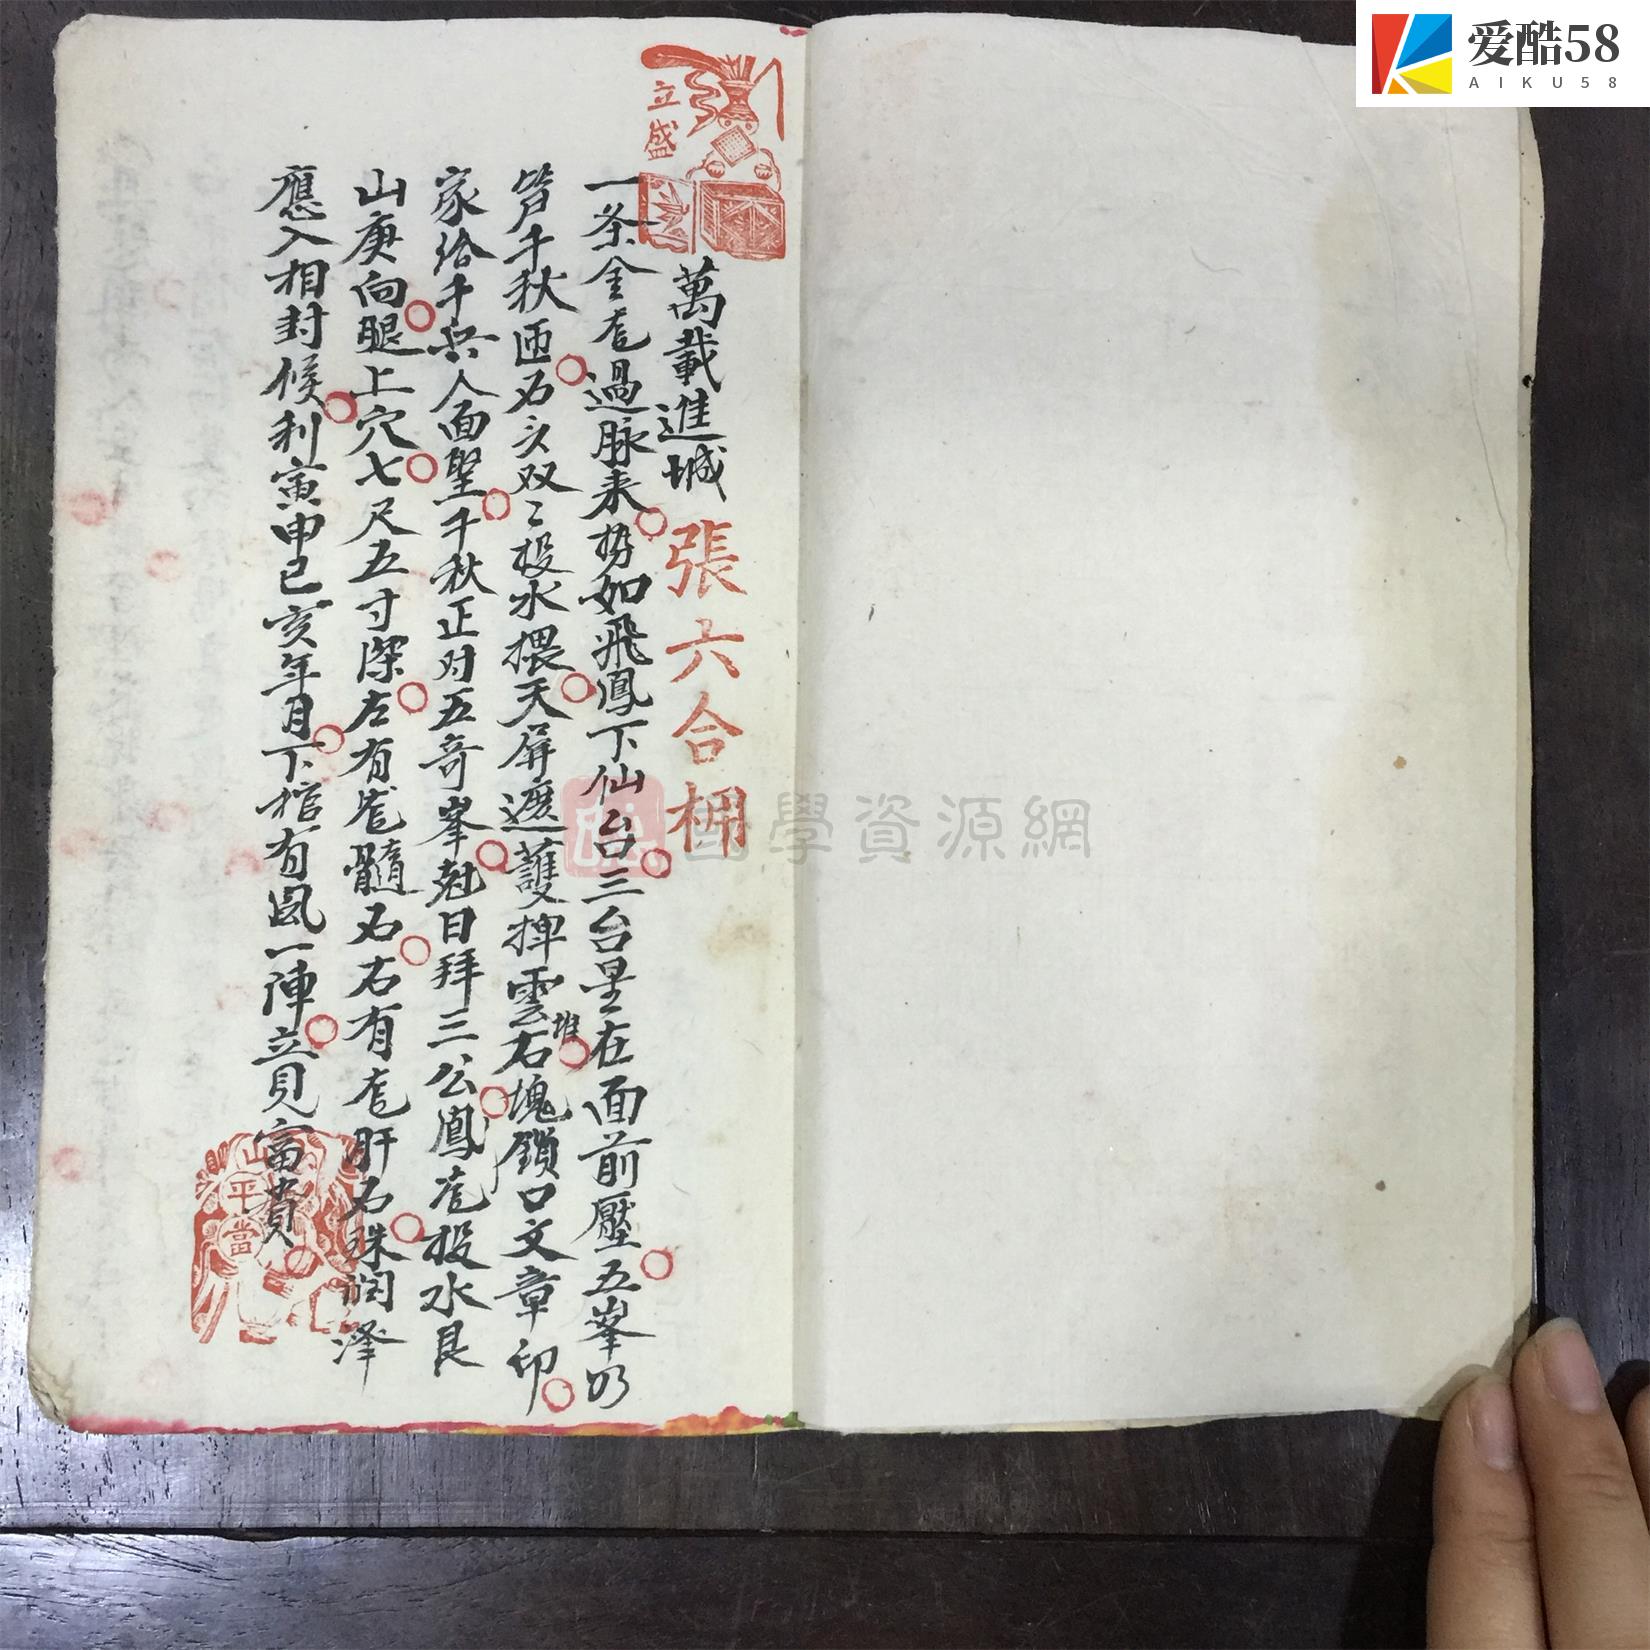 爱酷58
AIKU58
立盛
萬載進城 張六合
一条金危過脉来势如飛鳳下仙台三台星在面前壓五峯
千秋匝双〻投水揋天屏遮護捭雲石堆塊鎖口文章印
家给千兵人面聖千秋正对五奇峯日拜三公鳳危投水艮
山庚向腿上穴七尺五寸深左有危髓石右有危肝石珠润澤
應入相封候利寅申巳亥年月下棺有風一陣立見富貴
山平當
國學資源網